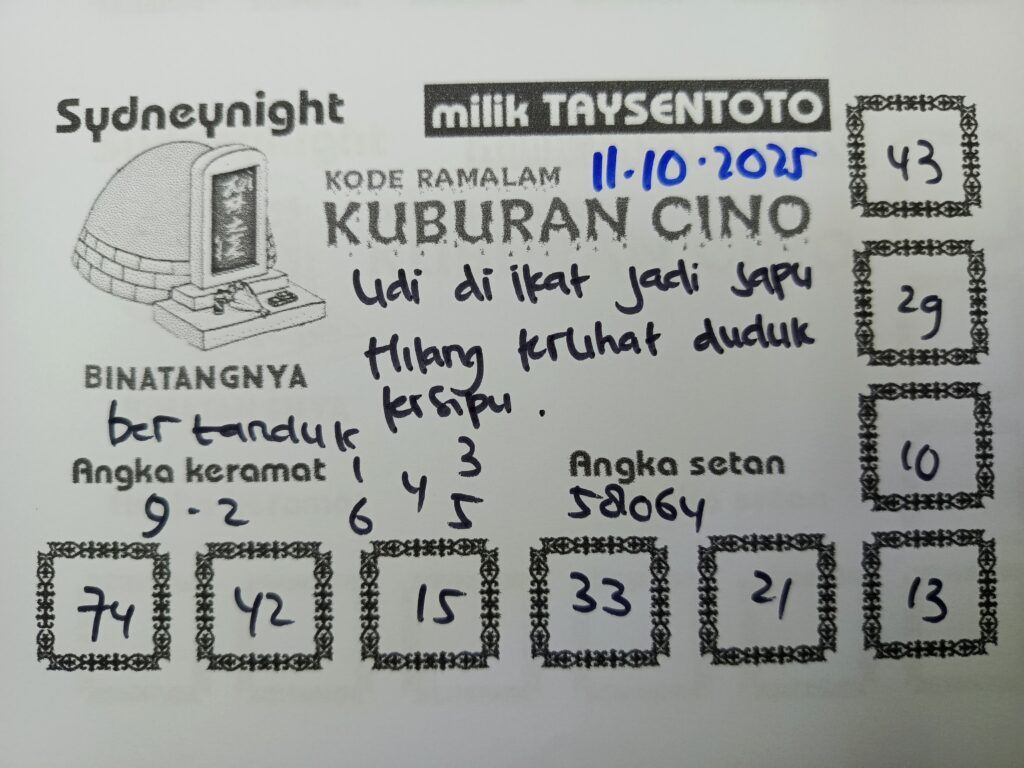 Sydneynight
milik TAYSENTOTO
KODE RAMALAM
11.10.2025
KUBURAN CINO
Udi di ikat jadi sapu
Hilang terlihat duduk
tersipu.
BINATANGNYA
bertanduk
Angka keramat
9-2
1 3
4
6 5
Angka setan
58064
43
29
10
74 42 15 33 21 13